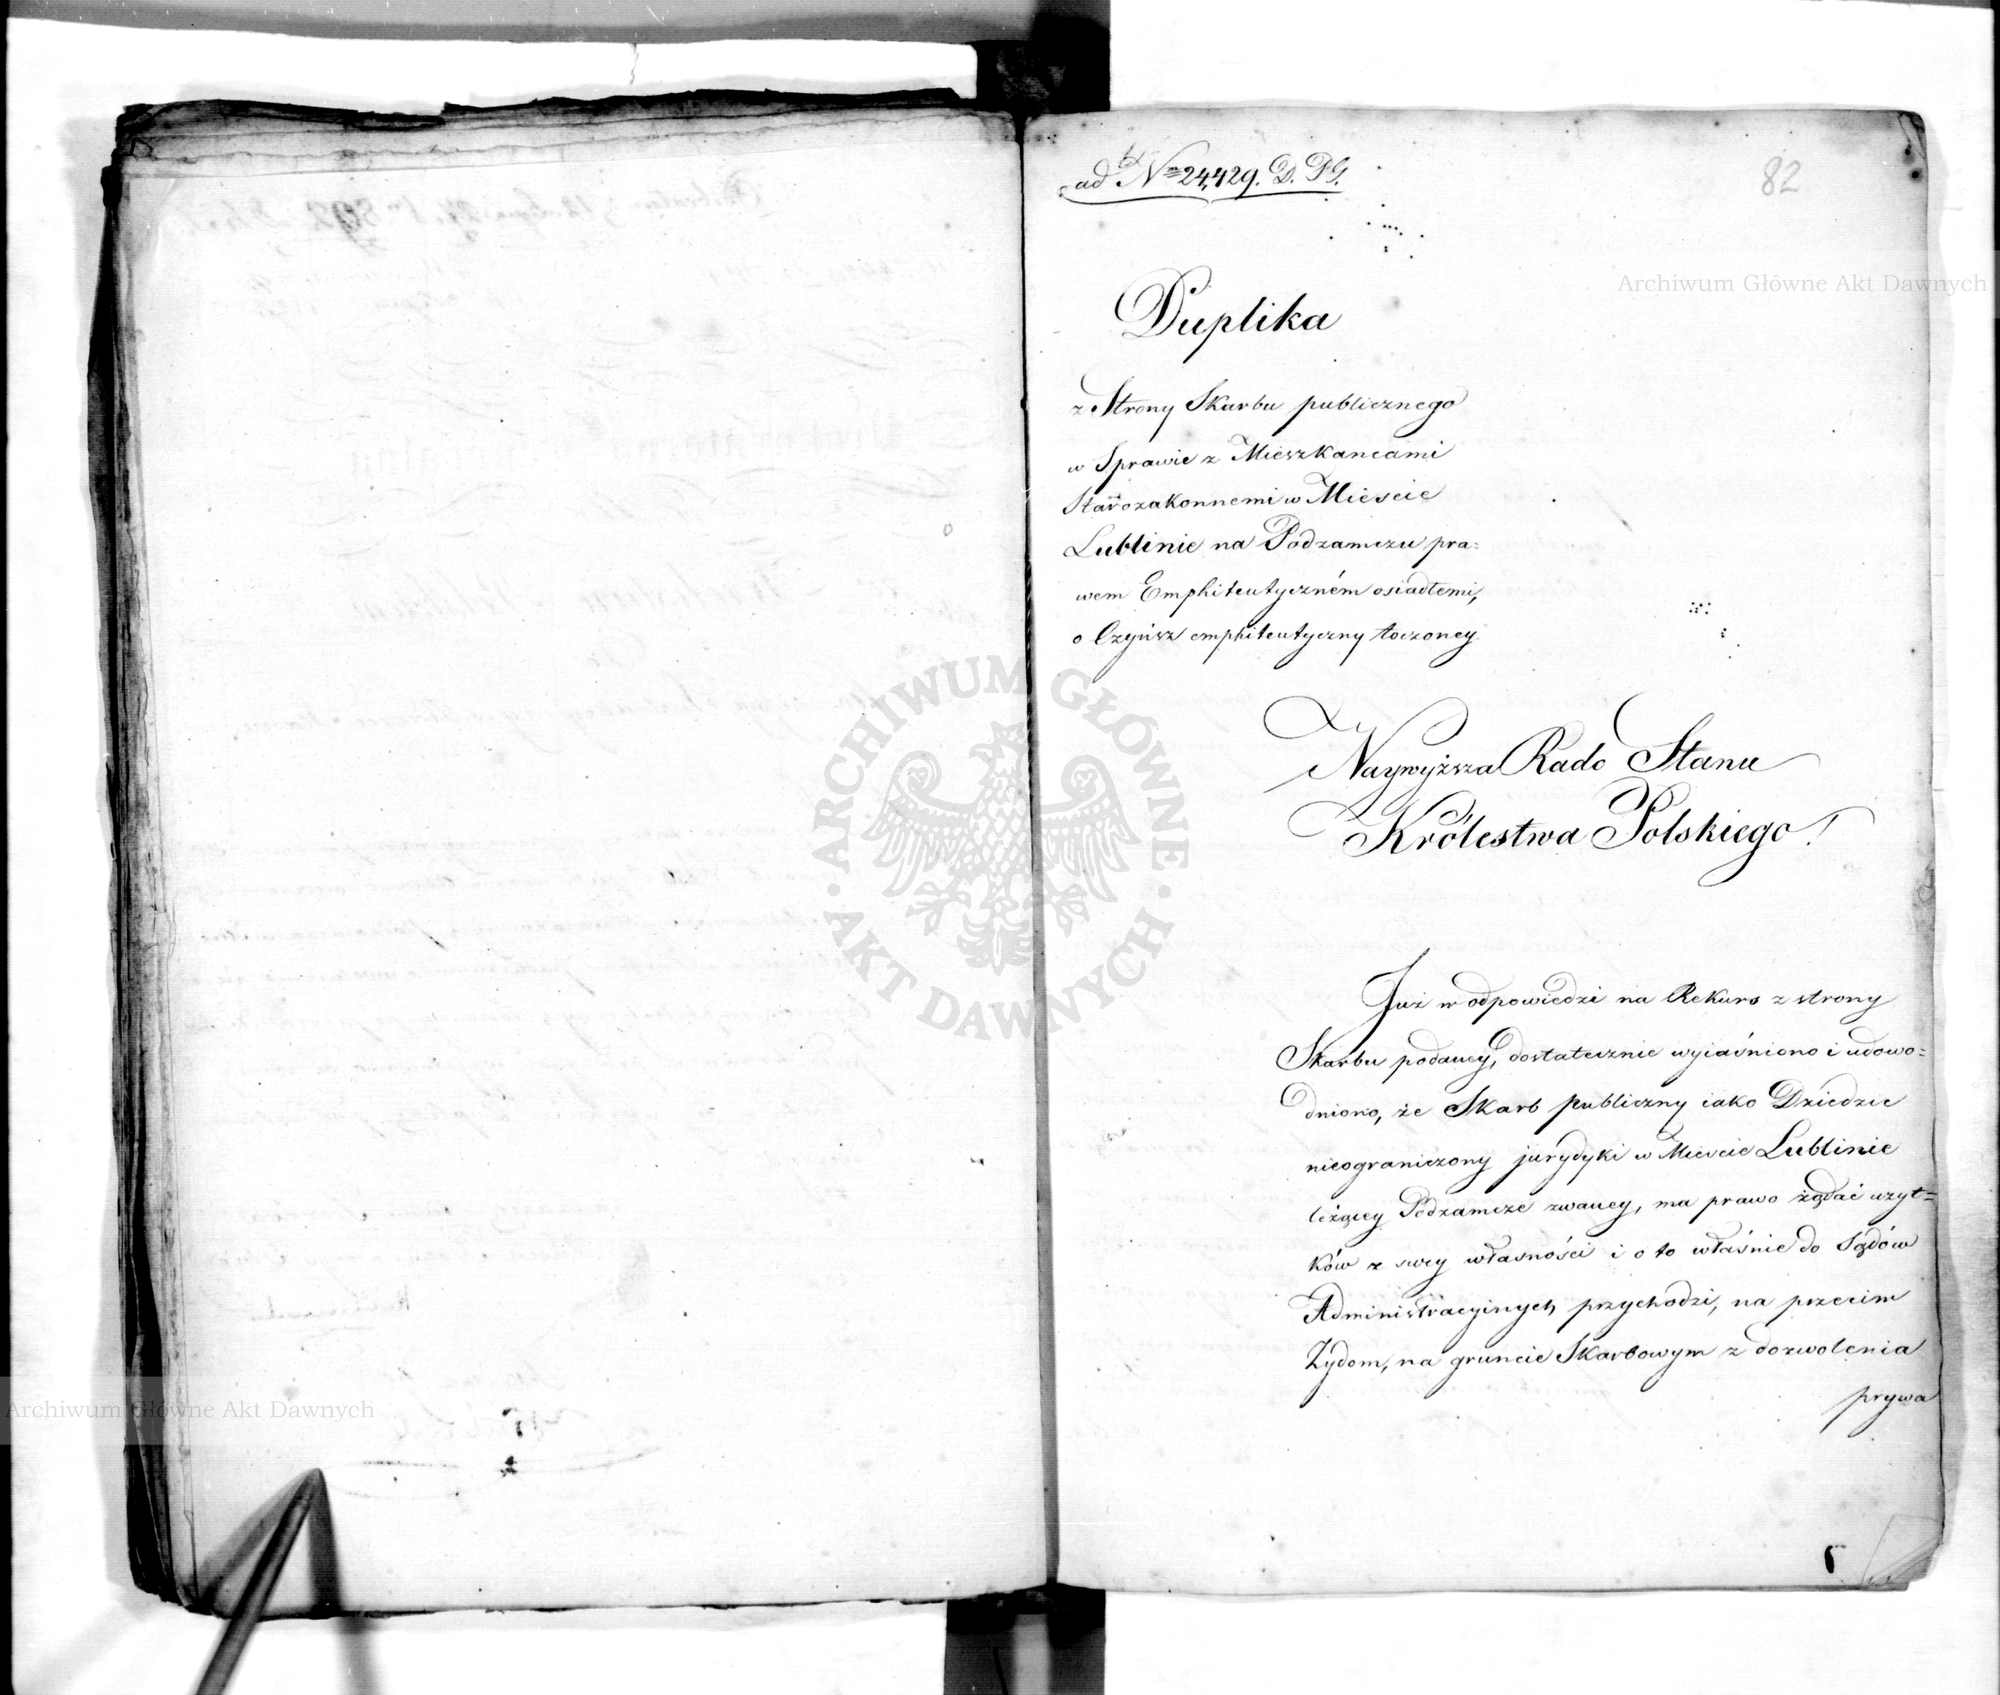 ad Nm 24,429. D. P.G.
82
Archiwum Główne Akt Dawnych
Duplika
z Strony Skarbu publicznego
w Sprawie z Mieszkancami
Starozakonnemi w Mieście
Lublinie na Podzamczu pra=
wem Emphiteutyczném osiadłemi,
o Czynsz emphiteutyczny toczoney
Naywyższa Rado Stanu
Królestwa Polskiego!
ARCHIWUM GŁÓWNE
AKT DAWNYCH
Już w odpowiedzi na Rekurs z strony
Skarbu podaney, dostatecznie wyiaśniono i udowo=
dniono, że Skarb publiczny iako Dziedzic
nieograniczony jurydyki w Mieście Lublinie
leżącey Podzamcze zwaney, ma prawo żądać użyt=
ków z swey własności i o to właśnie do Sądów
Administracyinych przychodzi, na przeciw
Żydom, na gruncie Skarbowym z dozwolenia
prywa
Archiwum Główne Akt Dawnych